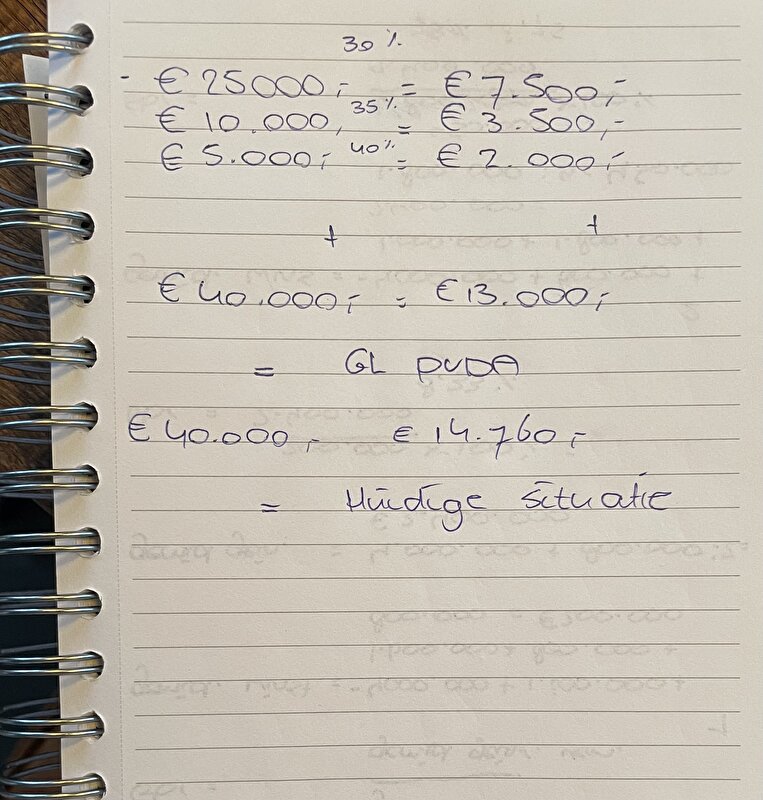 30%
- € 25000,- = € 7.500,-
€ 10.000, 35% = € 3.500,-
€ 5.000,- 40% = € 2.000,-
+ +
€ 40.000,- = € 13.000,-
= GL PVDA
€ 40.000,- € 14.760,-
= Huidige situatie